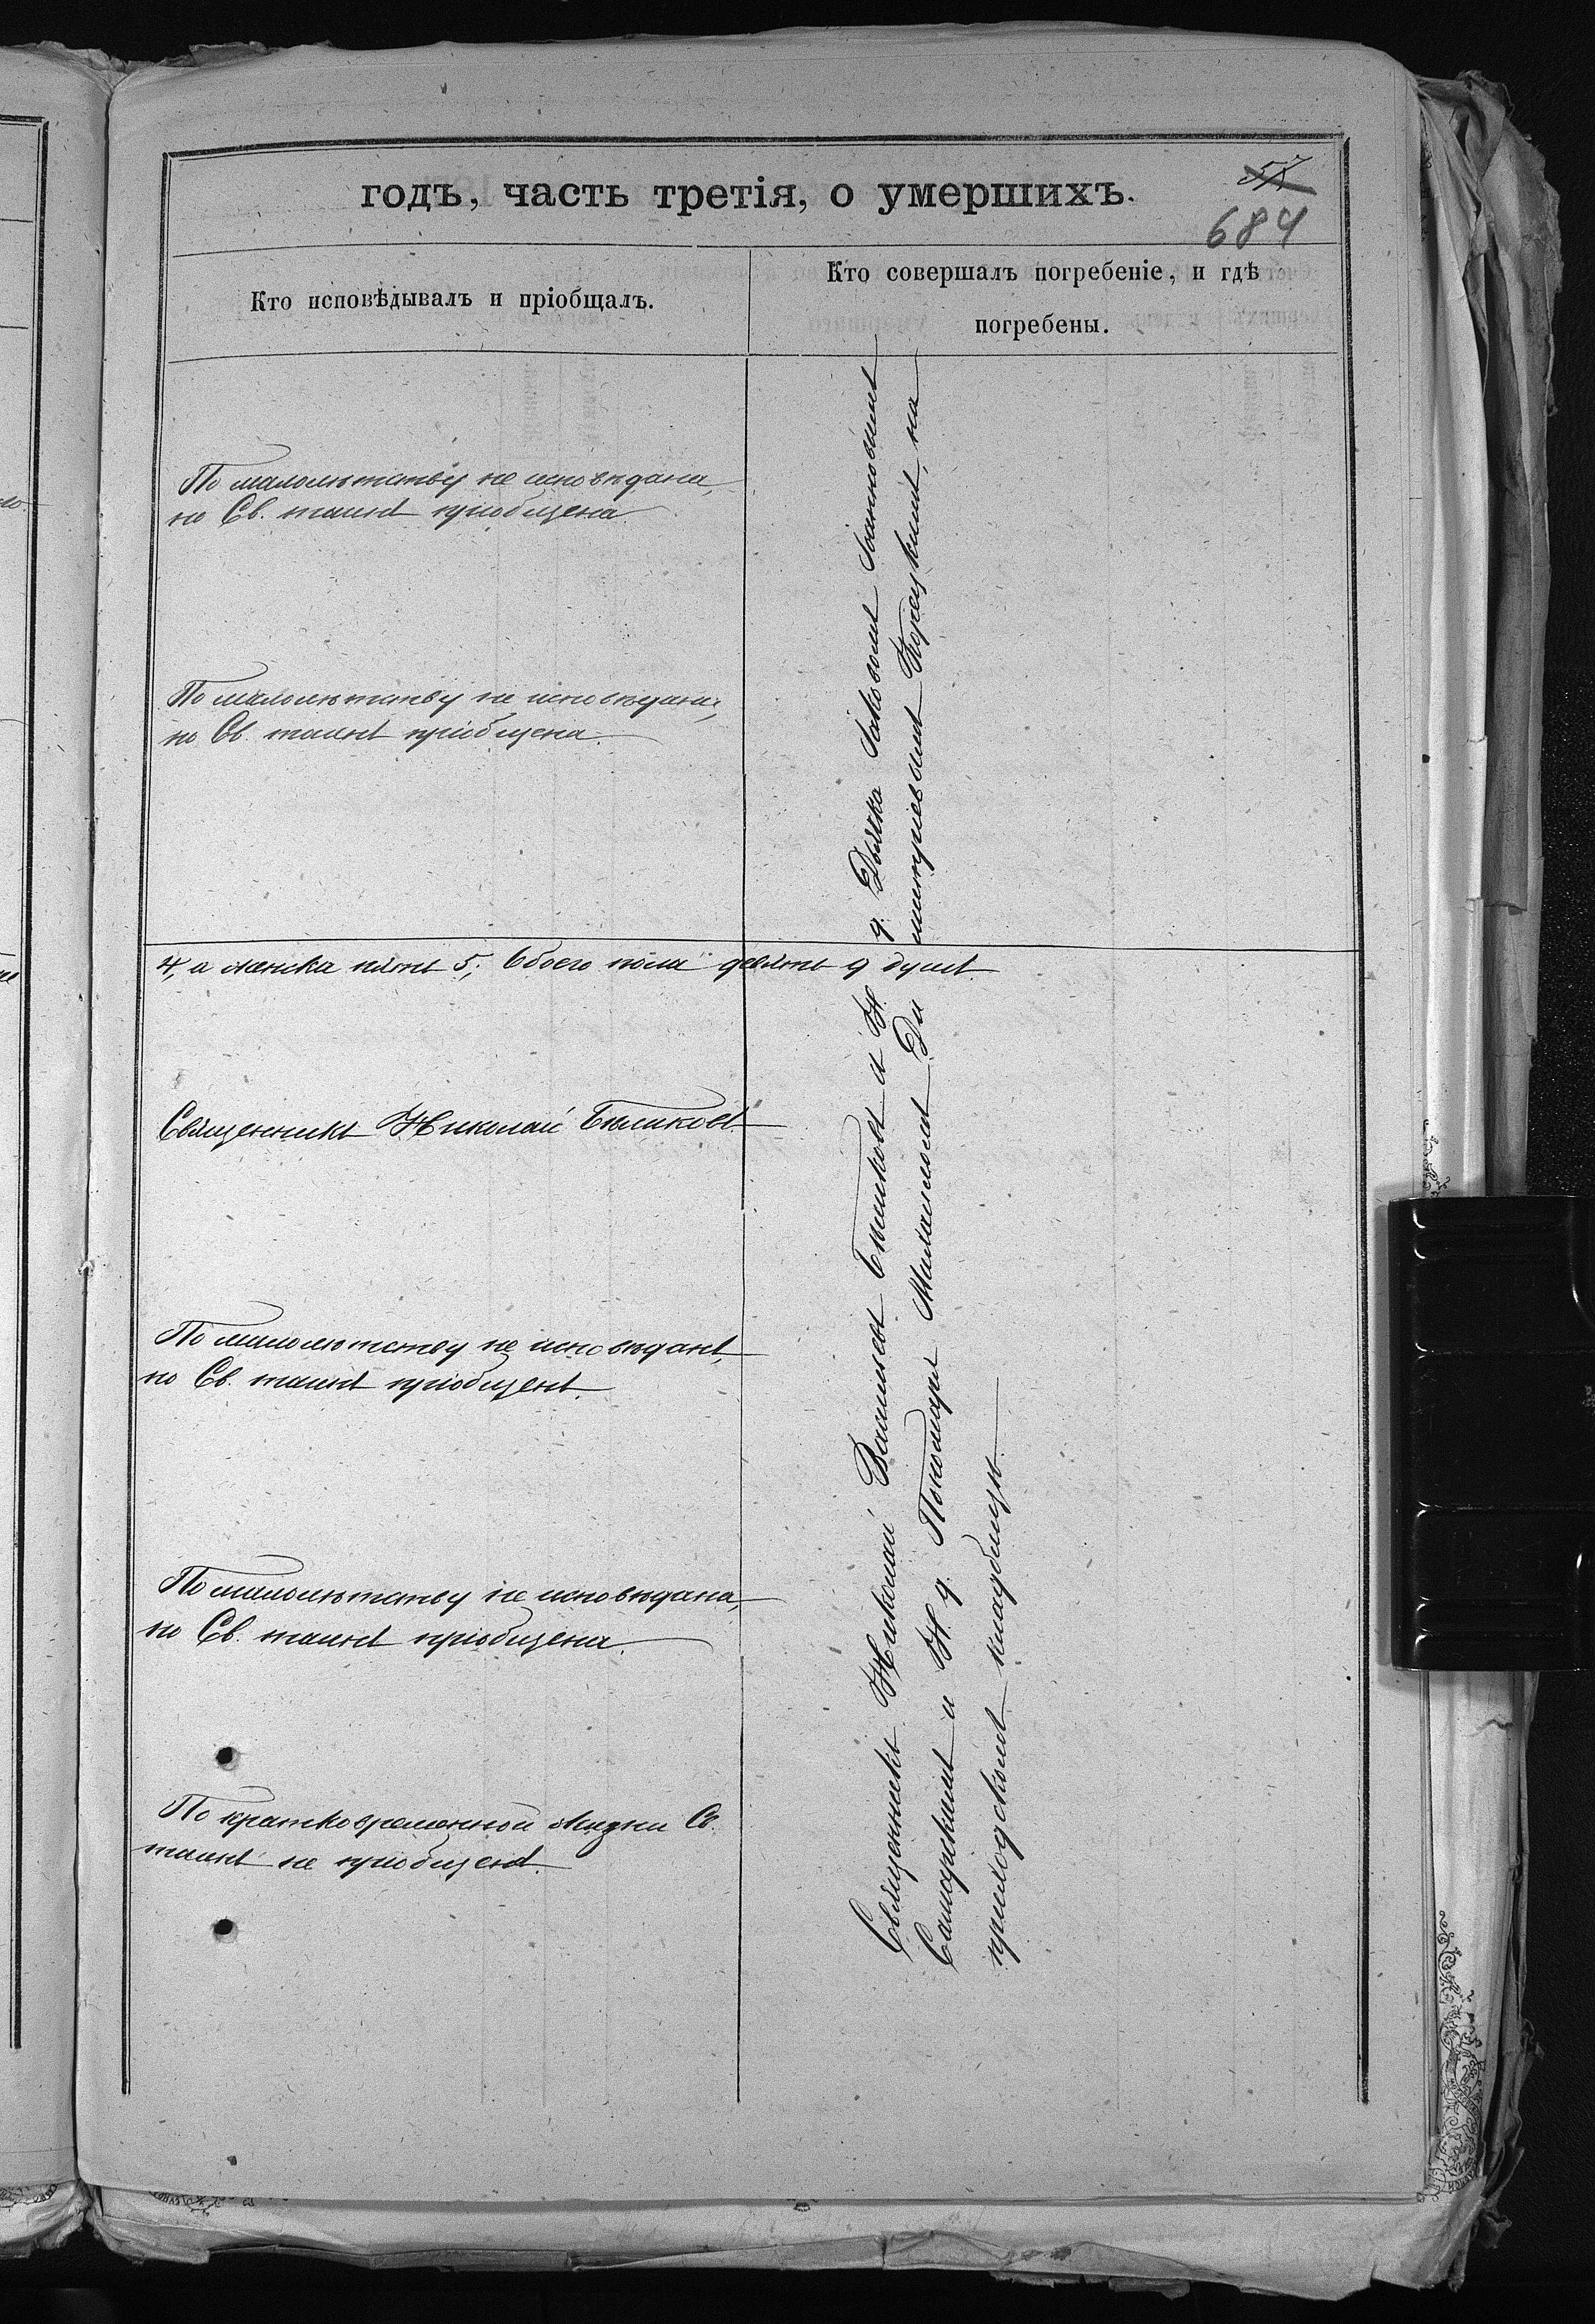 годъ, часть третія, о умершихъ.
57
684
Кто исповѣдывалъ и пріобщалъ.
Кто совершалъ погребеніе, и гдѣ
погребены.
По малолѣтству не исповѣдана,
но Св. таинъ пріобщена.
По малолѣтству не исповѣдана,
но Св. таинъ пріобщена.
4, а женска пять 5; Обоего пола девять 9 душъ.
Священникъ Николай Бѣликовъ.
По малолѣтству не исповѣданъ,
но Св. таинъ пріобщенъ.
По малолѣтству не исповѣдана,
но Св. таинъ пріобщена.
По кратковременной жизни Св.
таинъ не пріобщенъ.
Священникъ Николай Васильевъ Бѣликовъ и Н.
д. Дьячка Іаковомъ Іоанновымъ
и Н. д. Пономаря Михаиломъ Ди
митріевымъ Корецкимъ, на
приходскомъ кладбищѣ.